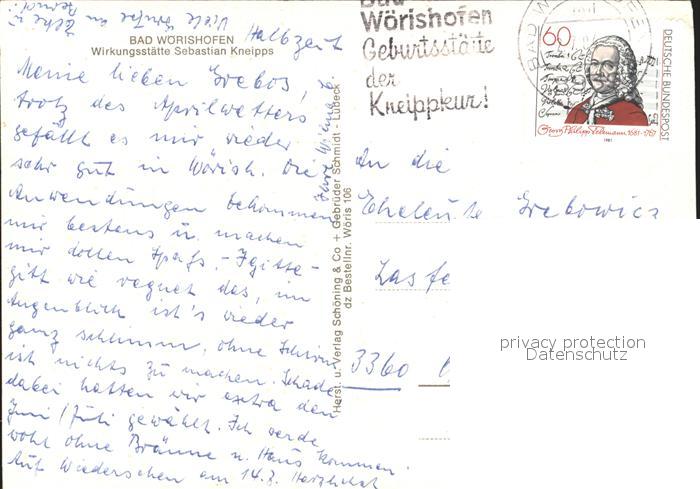 Viele Grüße an Elke u.
BAD WÖRISHOFEN
Wirkungsstätte Sebastian Kneipps
Halbzeit
Meine lieben Grebos,
trotz des Aprilwetters
gefällt es mir wieder
sehr gut in Wörish. Die
Anwendungen bekommen
mir bestens u. machen
mir dollen Spaß. - Igitte-
gitt wie regnet das, im
Augenblick ist's wieder
ganz schlimm, ohne Schirm
ist nichts zu machen. Schade
dabei hatten wir extra den
Juni/Juli gewählt. Ich werde
wohl ohne Bräune n. Haus kommen.
Auf Wiedersehen am 14.7. Herzlichst
Herst. u. Verlag Schöning & Co + Gebrüder Schmidt · Lübeck
dz Bestellnr. Wöris 106
Bad
Wörishofen
Geburtsstätte
der
Kneippkur!
BAD WÖ
60
DEUTSCHE BUNDESPOST
Georg Philipp Telemann 1681-1767
1981
An die
Eheleute Grebowicz
3360
privacy protection
Datenschutz